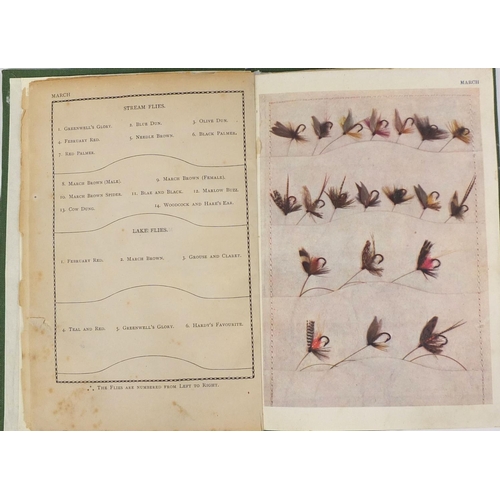 MARCH
STREAM FLIES.
1. Greenwell's Glory. 2. Blue Dun. 3. Olive Dun.
4. February Red. 5. Needle Brown. 6. Black Palmer.
7. Red Palmer.
8. March Brown (Male). 9. March Brown (Female).
10. March Brown Spider. 11. Blae and Black. 12. Marlow Buzz.
13. Cow Dung. 14. Woodcock and Hare's Ear.
LAKE FLIES.
1. February Red. 2. March Brown. 3. Grouse and Claret.
4. Teal and Red. 5. Greenwell's Glory. 6. Hardy's Favourite.
∴ The Flies are numbered from Left to Right.
MARCH